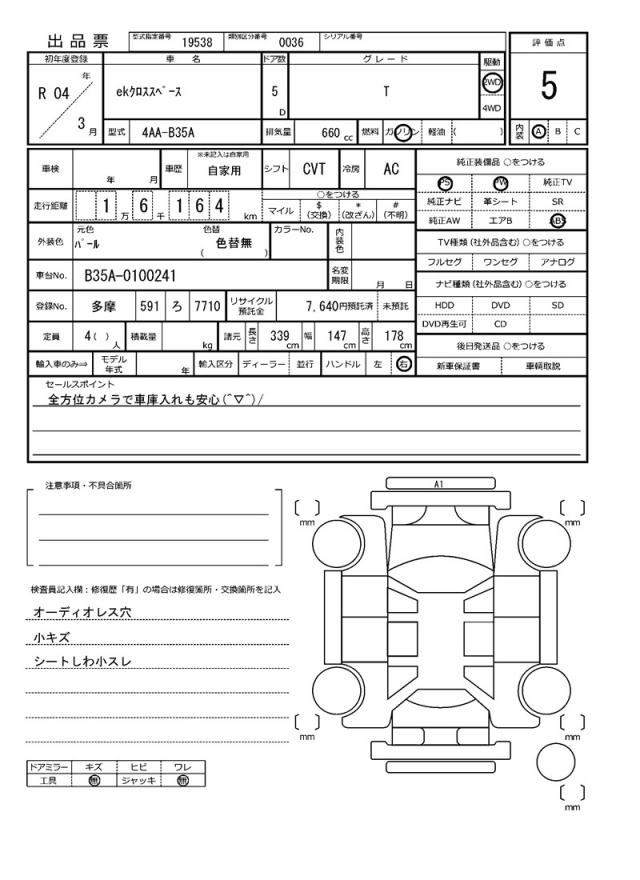 出品票
型式指定番号 19538 類別区分番号 0036 シリアル番号
初年度登録 車名 ドア数 グレード 駆動 評価点
R 04 年 3 月 ekクロススペース 5 D T 2WD 4WD 5
型式 4AA-B35A 排気量 660 cc 燃料 ガソリン 軽油 ( ) 内装 A B C
車検 年 月 車歴 ※未記入は自家用 自家用 シフト CVT 冷房 AC
走行距離 1 万 6 千 1 6 4 km
○をつける
マイル $(交換) *(改ざん) #(不明)
外装色 元色 パール 色替 色替無 ( ) カラーNo. 内装色
車台No. B35A-0100241 名変期限 月 日
登録No. 多摩 591 ろ 7710 リサイクル預託金 7,640円預託済 未預託
定員 4( ) 人 積載量 kg 諸元 長さ 339 cm 幅 147 cm 高さ 178 cm
輸入車のみ⇒ モデル年式 年 輸入区分 ディーラー 並行 ハンドル 左 右
純正装備品 ○をつける
PS PW 純正TV
純正ナビ 革シート SR
純正AW エアB ABS
TV種類(社外品含む)○をつける
フルセグ ワンセグ アナログ
ナビ種類(社外品含む)○をつける
HDD DVD SD
DVD再生可 CD
後日発送品 ○をつける
新車保証書 車輌取説
セールスポイント
全方位カメラで車庫入れも安心(^▽^)/
注意事項・不具合箇所
検査員記入欄:修復歴「有」の場合は修復箇所・交換箇所を記入
オーディオレス穴
小キズ
シートしわ小スレ
ドアミラー キズ ヒビ ワレ
工具 無 ジャッキ 無
A1
mm
mm
mm
mm
mm